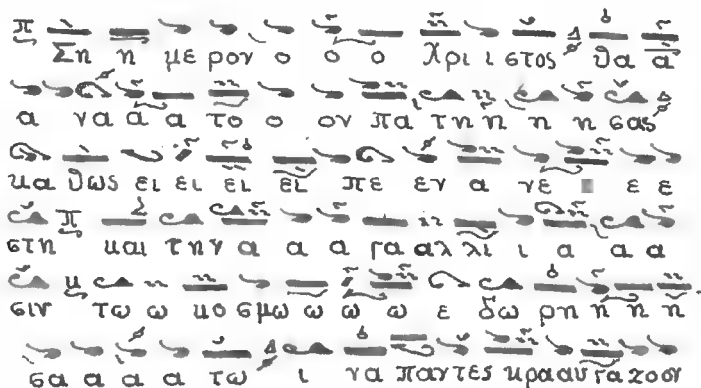 Ση η με ρον ο ο ο Χρι ι στος θα α
α να α α το ο ον πα τη η η η σας
κα θως ει ει ει ει πε εν α γε ε ε
στη και την α α α γα αλ λι ι α α α
σιν τω ω κο σμω ω ω ω ε δω ρη η η η
σα α α α τω ι να παντες κρααυγαζοον